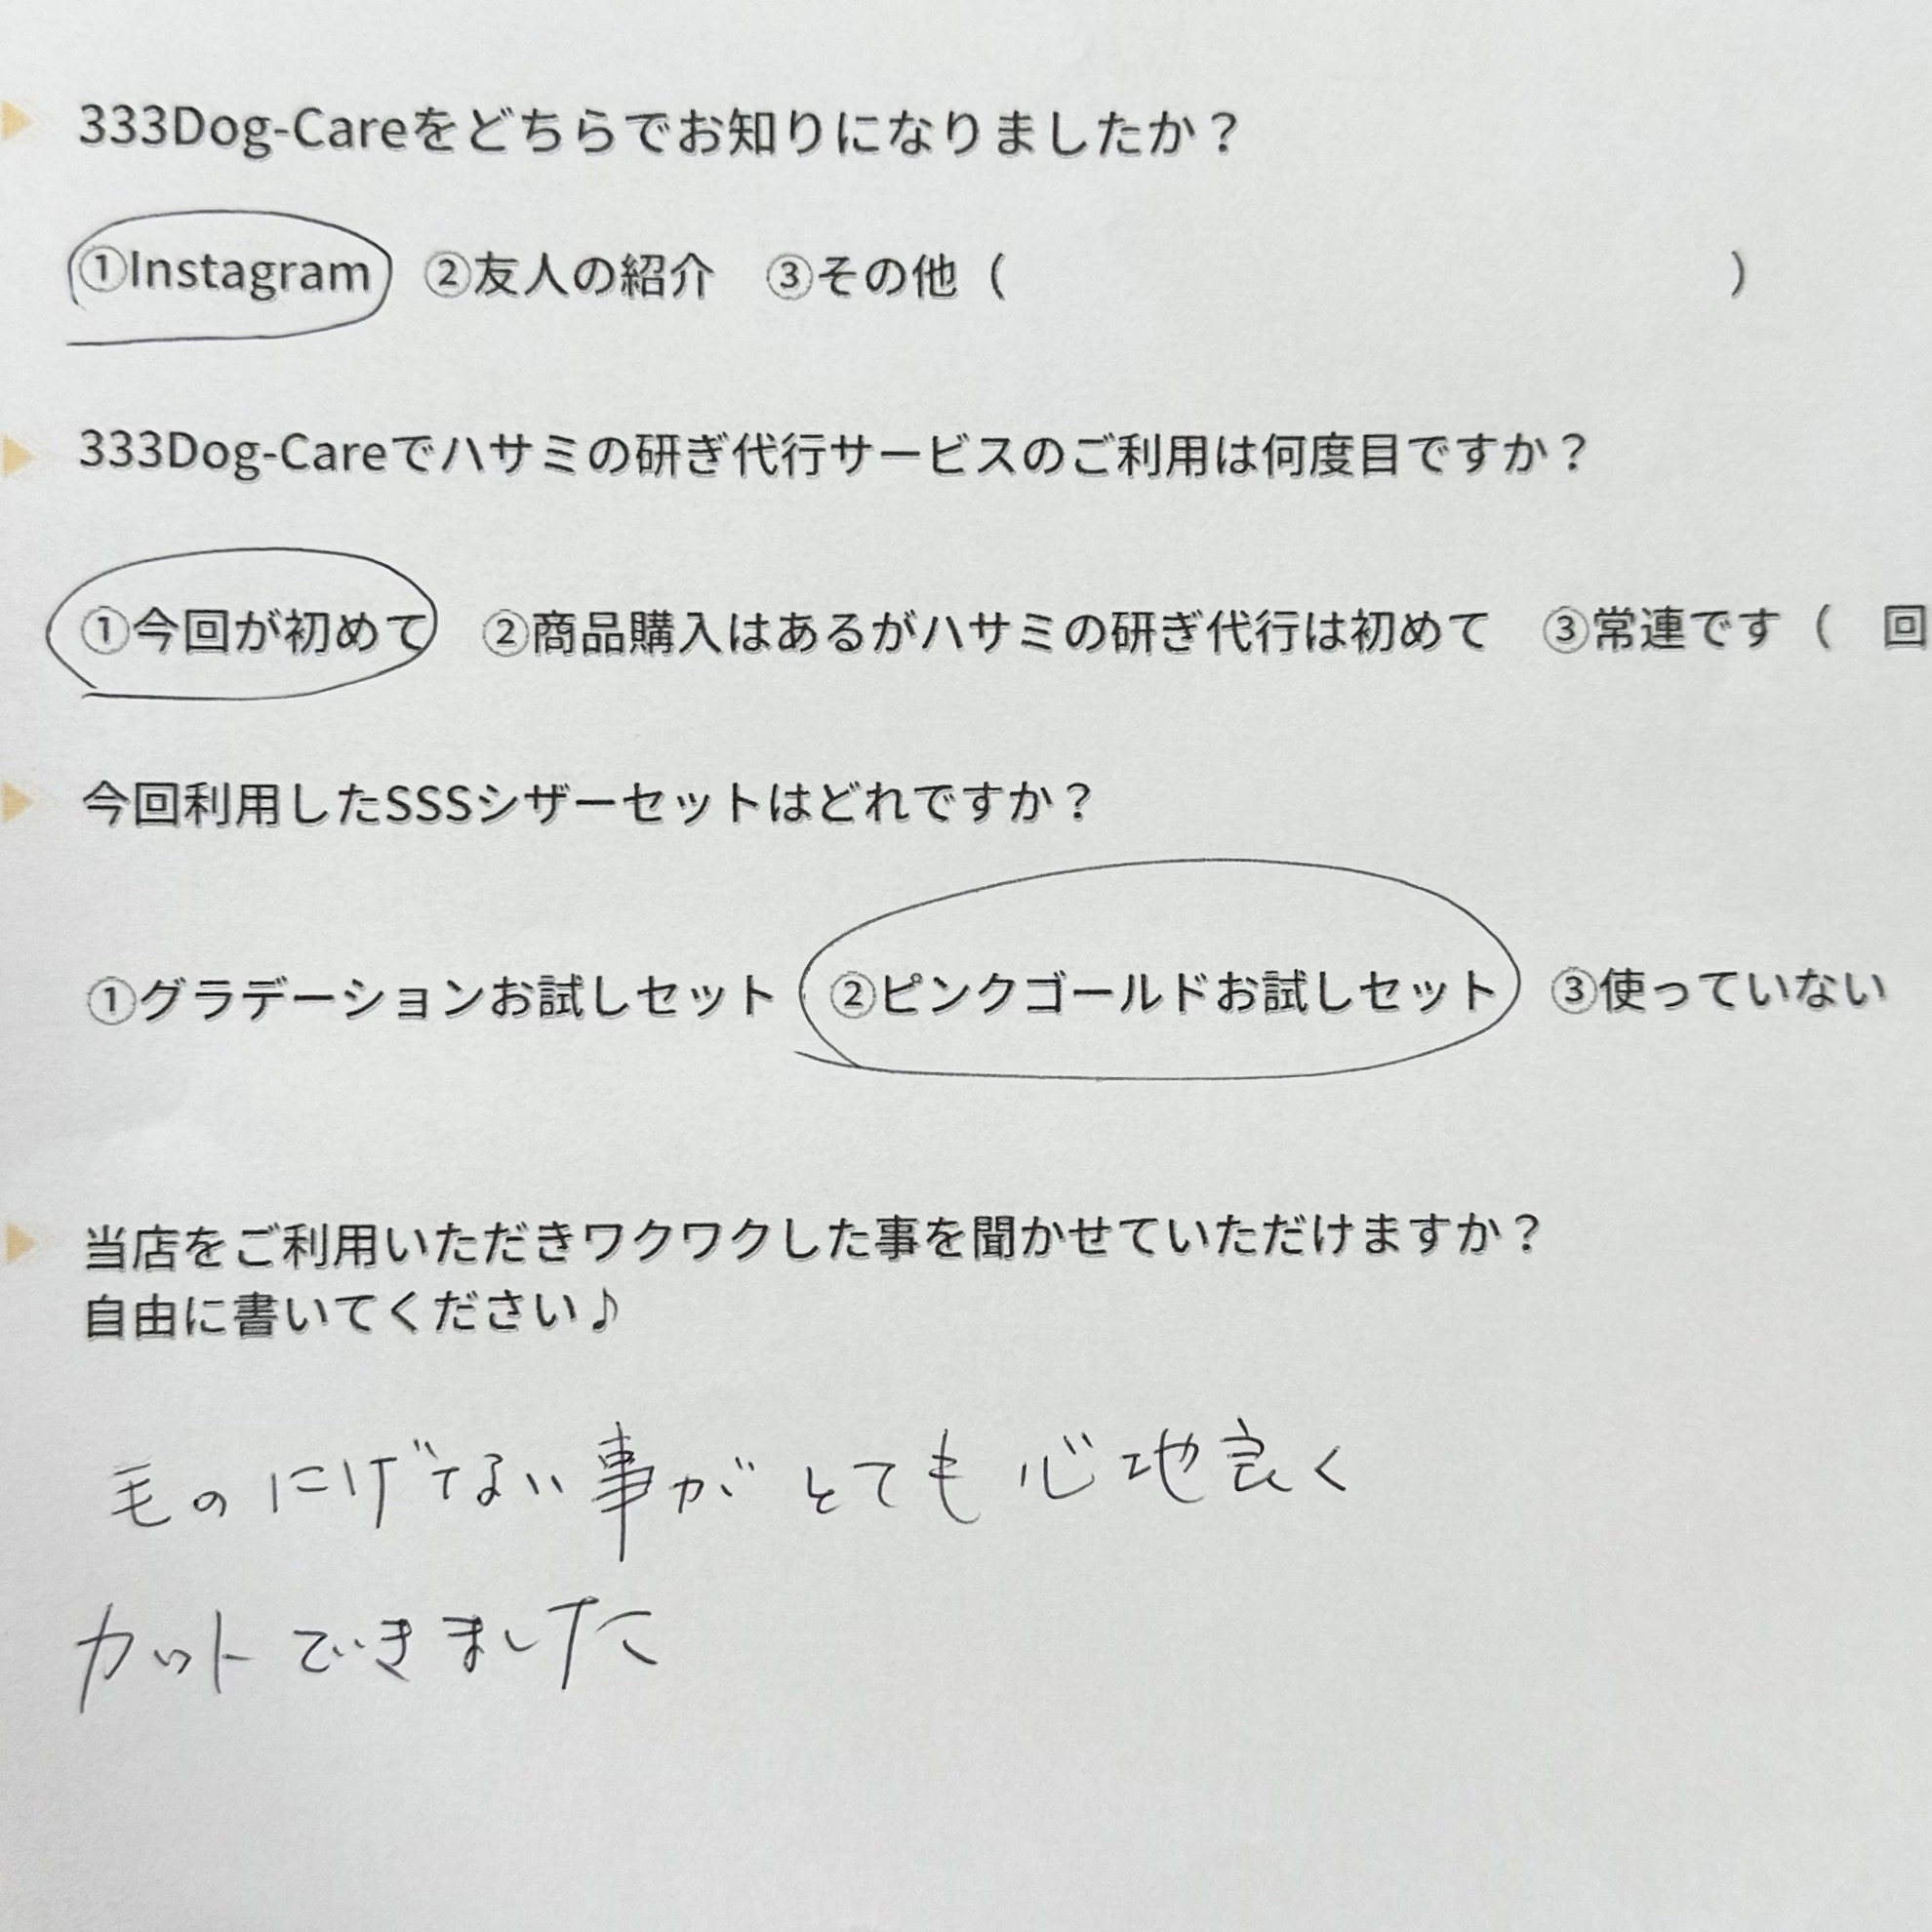 333Dog-Careをどちらでお知りになりましたか？
①Instagram ②友人の紹介 ③その他（ ）
333Dog-Careでハサミの研ぎ代行サービスのご利用は何度目ですか？
①今回が初めて ②商品購入はあるがハサミの研ぎ代行は初めて ③常連です（ 回
今回利用したSSSシザーセットはどれですか？
①グラデーションお試しセット ②ピンクゴールドお試しセット ③使っていない
当店をご利用いただきワクワクした事を聞かせていただけますか？
自由に書いてください♪
毛のにげてない事がとても心地良く
カットできました